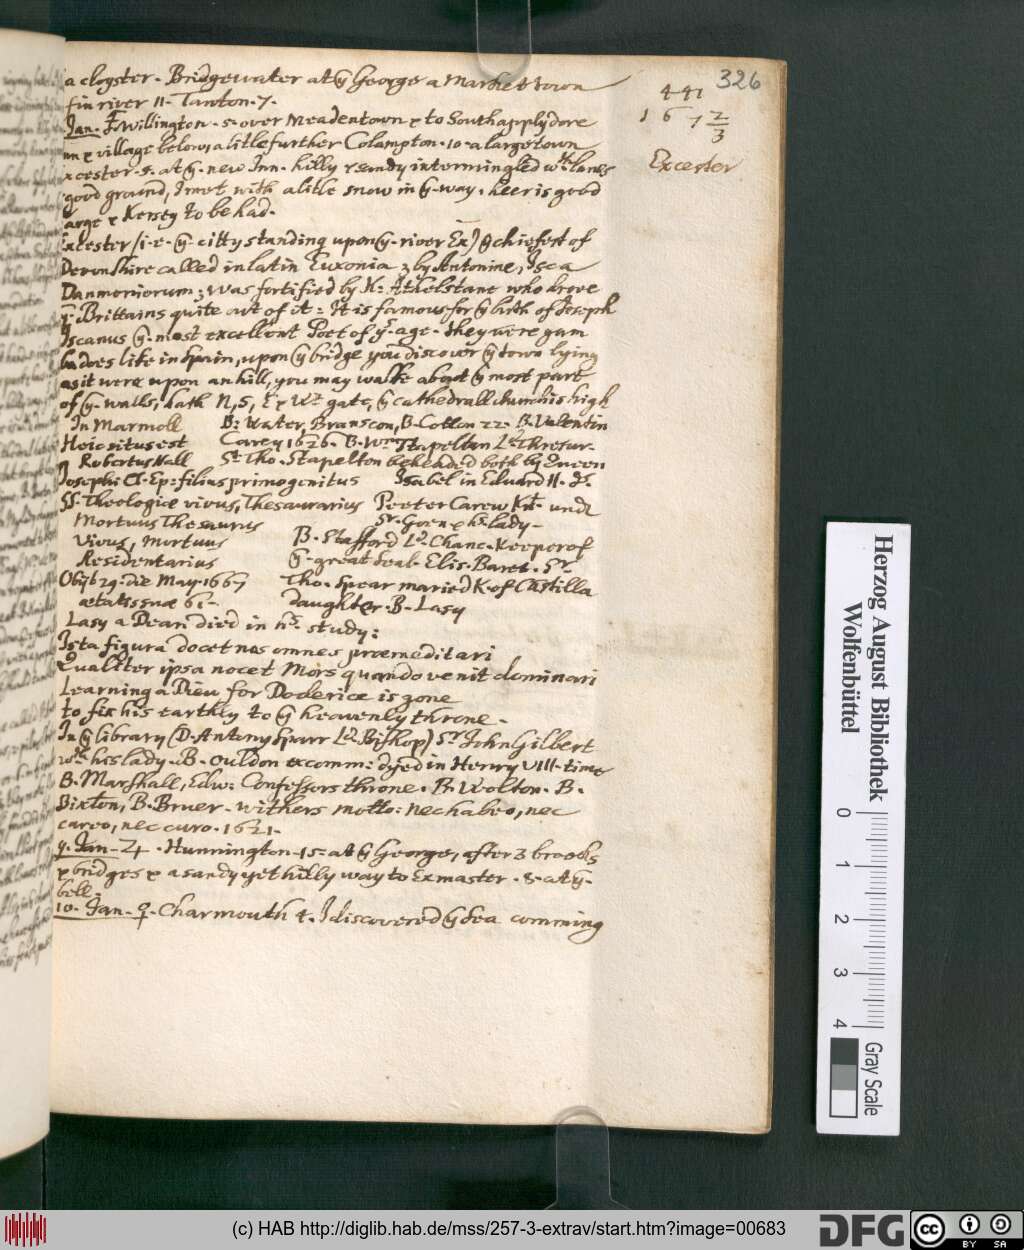 326
441
1 6 7 2/3
Excester
a cloyster. Bridgewater at ÿ George a Market town
fin river 11. Tanton. 7.
Jan. ♃ Willington. 5. over Meadentown & to Southapplydore
nn & village below, a litle further Colampton. 10. a large town
xcester. 5. at ÿ. new Inn. hilly & sandy intermingled wth. lanes
good ground, I met with a litle snow in ÿ. way, heer is good
arge & Kersey to be had.
Excester (i.e. ÿ. citty standing upon ÿ. river Ex) ÿ chiefest of
Devonshire called in latin Euxonia & by Antonine, Isca
Danmoniorum; was fortified by K: Athelstane who drove
ÿ. Brittains quite out of it: It is famous for ÿ birth of Joseph
Iscanus ÿ. most excellent Poet of yt. age. they were gam
badoes like in Spain, upon ÿ bridge you discover ÿ town lying
as it were upon an hill, you may walke about ÿ most part
of ÿ. walls, hath N, S, E & Wt gate, ÿ cathedrall church is high
In Marmoll
Hoic situs est
Robertus Hall
Josephi Cl. Ep: filius primogenitus
SS. Theologiæ vivus, Thesaurarius
Mortuus Thesaurus
Vivus, Mortuus
Residentarius
Obijt 29. die May. 1667
ætatis suæ 61.
B: Water, Branscon, B. Cotton 22. B. Valentin
Carey 1626. B. Wm Stapeldon Ld. Thresur.
Sr. Tho. Stapelton beheaded both by Queen
Isabel in Eduard II.
Peeter Carew Kt. unde
Sr. Goen & hs. lady.
B. Stafford Ld. Chanc. Keeper of
ÿ. great Seal. Elis. Baret. Sr.
Tho. Spear maried K. of Castilla
daughter. B. Lasy
Lasy a Dean died in hs. study:
Ista figura docet nos omnes præmeditari
Qualiter ipsa nocet Mors quando venit dominari
Learning a Dieu for Doderice is gone
to fix his earthly to ÿ heavenly throne.
In ÿ library (D. Antony Sparr Ld. Bishop) Sr John Gilbert
wth. his lady. B. Ouldon excomm: dyed in Henry VIII. time
B. Marshall, Edw: Confessors throne. B. Wolton. B.
Bixton, B. Bruer. withers motto: nec habeo, nec
careo, nec curo. 1621.
9. Jan. ♃. Hunnington. 15. at ÿ George, after 3 brooks
& bridges & a sandy yet hilly way to Exmaster. 8. at ÿ.
bell.
10. Jan. ♀. Charmouth 4. I discovered ÿ sea comming
Herzog August Bibliothek
Wolfenbüttel
0 1 2 3 4
Gray Scale
(c) HAB http://diglib.hab.de/mss/257-3-extrav/start.htm?image=00683
DFG
cc BY SA